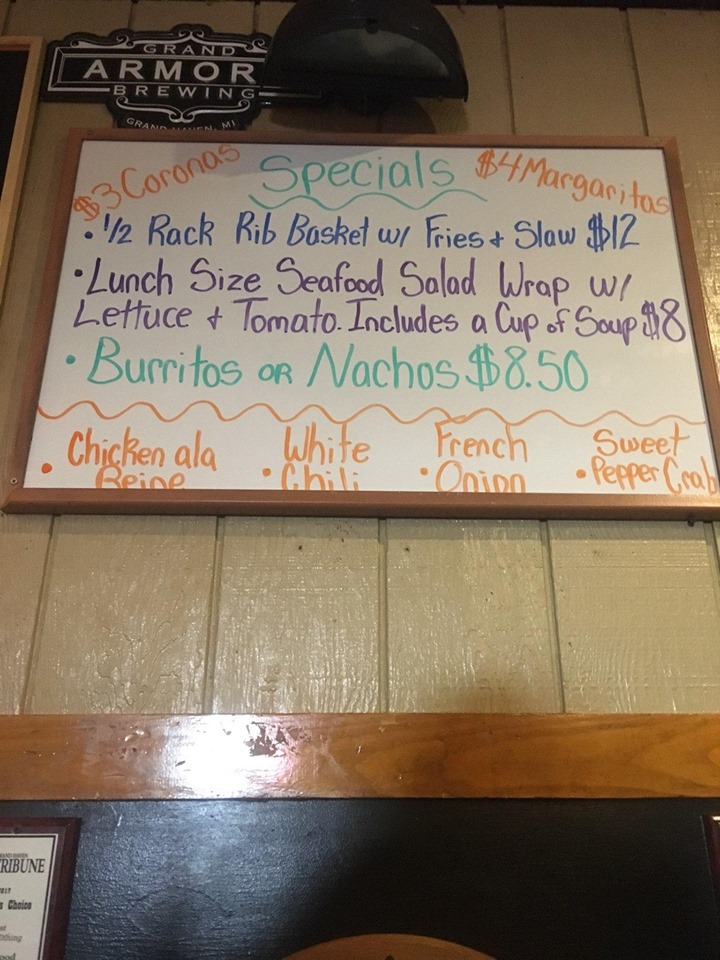 GRAND
ARMOR
BREWING
GRAND HAVEN, MI
$3 Coronas
Specials
$4 Margaritas
• 1/2 Rack Rib Basket w/ Fries + Slaw $12
• Lunch Size Seafood Salad Wrap w/
Lettuce + Tomato. Includes a Cup of Soup $8
• Burritos OR Nachos $8.50
• Chicken ala
Reine
• White
Chili
• French
Onion
• Sweet
Pepper Crab
GRAND HAVEN
TRIBUNE
2017
Choice